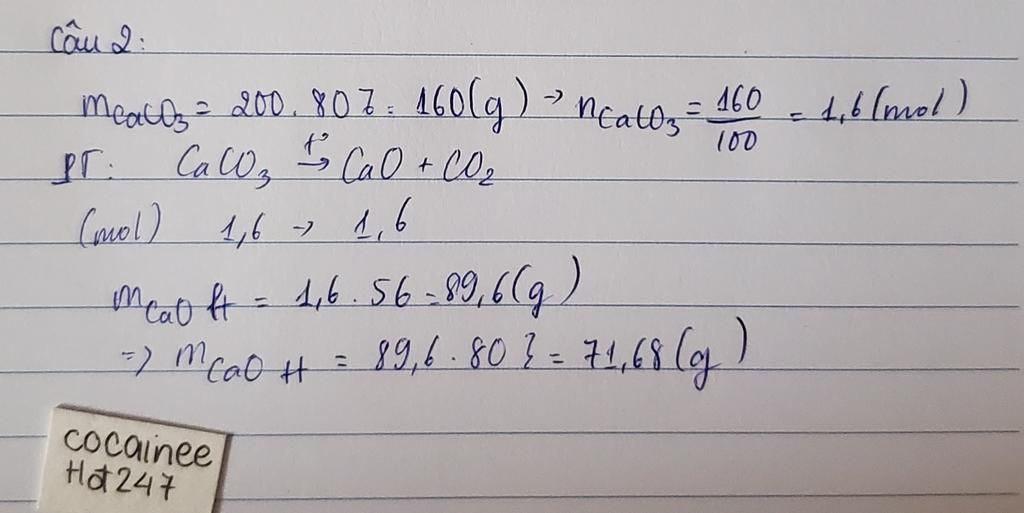 Câu 2:
mCaCO₃ = 200 . 80% = 160(g) → nCaCO₃ = 160/100 = 1,6 (mol)
PT: CaCO₃ t°→ CaO + CO₂
(mol) 1,6 → 1,6
mCaO lt = 1,6 . 56 = 89,6(g)
=> mCaO tt = 89,6 . 80% = 71,68(g)
cocainee
Hot247